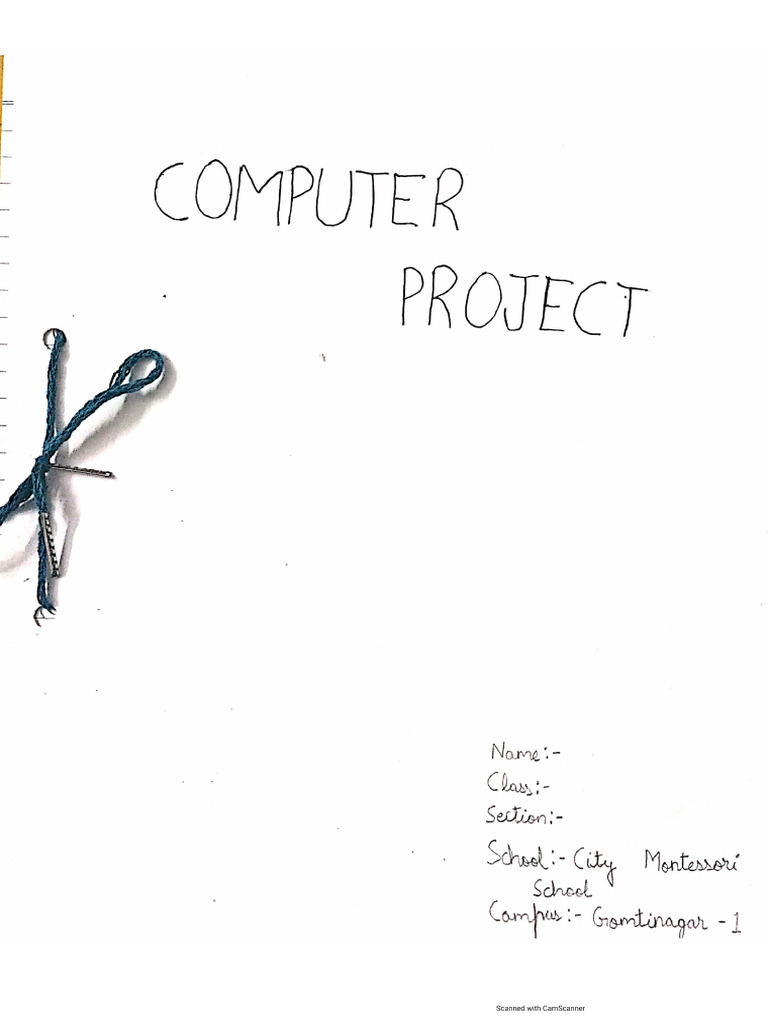 COMPUTER
PROJECT
Name:-
Class:-
Section:-
School:- City Montessori
School
Campus:- Gomtinagar - 1
Scanned with CamScanner